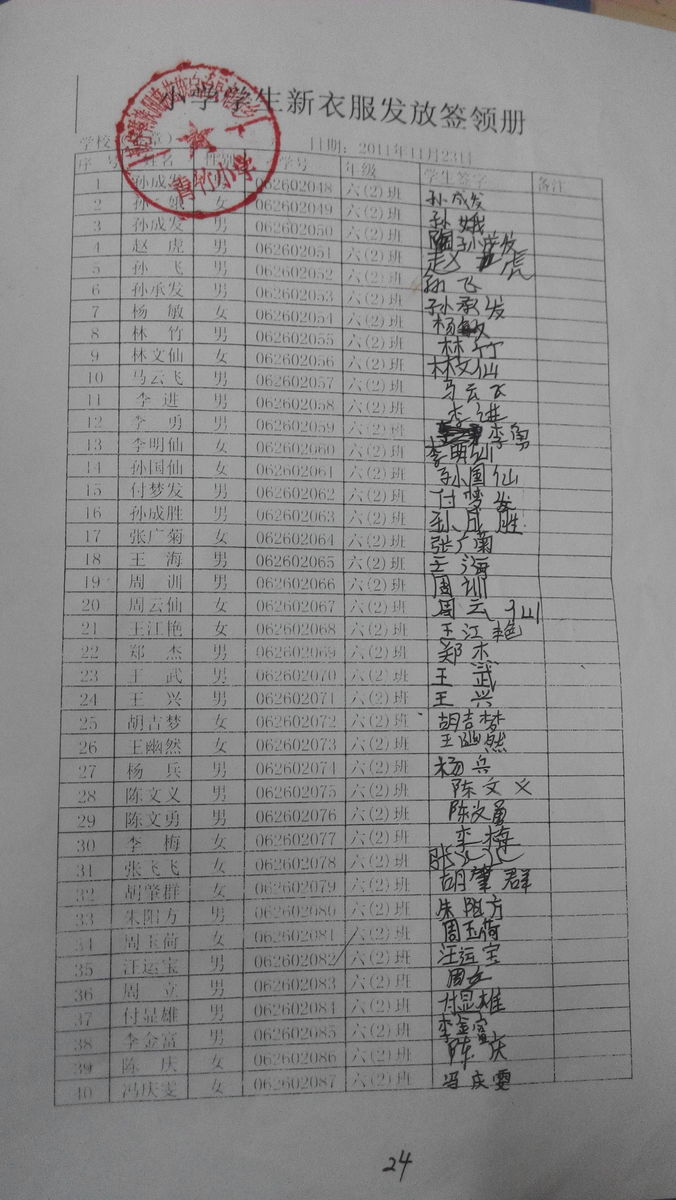 小学学生新衣服发放签领册
学校(章) 日期：2011年11月23日
青竹小学
序号 姓名 性别 学号 年级 学生签字 备注
1 孙成发 062602048 六(2)班 孙成发
2 孙娥 女 062602049 六(2)班 孙娥
3 孙成发 男 062602050 六(2)班 孙成发
4 赵虎 男 062602051 六(2)班 赵虎
5 孙飞 男 062602052 六(2)班 孙飞
6 孙承发 男 062602053 六(2)班 孙承发
7 杨敏 女 062602054 六(2)班 杨敏
8 林竹 男 062602055 六(2)班 林竹
9 林文仙 女 062602056 六(2)班 林文仙
10 马云飞 男 062602057 六(2)班 马云飞
11 李进 男 062602058 六(2)班 李进
12 李勇 男 062602059 六(2)班 李勇
13 李明仙 女 062602060 六(2)班 李明仙
14 孙国仙 女 062602061 六(2)班 孙国仙
15 付梦发 男 062602062 六(2)班 付梦发
16 孙成胜 男 062602063 六(2)班 孙成胜
17 张广菊 女 062602064 六(2)班 张广菊
18 王海 男 062602065 六(2)班 王海
19 周训 男 062602066 六(2)班 周训
20 周云仙 女 062602067 六(2)班 周云仙
21 王江艳 女 062602068 六(2)班 王江艳
22 郑杰 男 062602069 六(2)班 郑杰
23 王武 男 062602070 六(2)班 王武
24 王兴 男 062602071 六(2)班 王兴
25 胡吉梦 女 062602072 六(2)班 胡吉梦
26 王幽然 女 062602073 六(2)班 王幽然
27 杨兵 男 062602074 六(2)班 杨兵
28 陈文义 男 062602075 六(2)班 陈文义
29 陈文勇 男 062602076 六(2)班 陈文勇
30 李梅 女 062602077 六(2)班 李梅
31 张飞飞 女 062602078 六(2)班 张飞飞
32 胡肇群 女 062602079 六(2)班 胡肇群
33 朱阳方 男 062602080 六(2)班 朱阳方
34 周玉荷 女 062602081 六(2)班 周玉荷
35 汪运宝 男 062602082 六(2)班 汪运宝
36 周立 男 062602083 六(2)班 周立
37 付显雄 男 062602084 六(2)班 付显雄
38 李金富 男 062602085 六(2)班 李金富
39 陈庆 女 062602086 六(2)班 陈庆
40 冯庆雯 女 062602087 六(2)班 冯庆雯
24